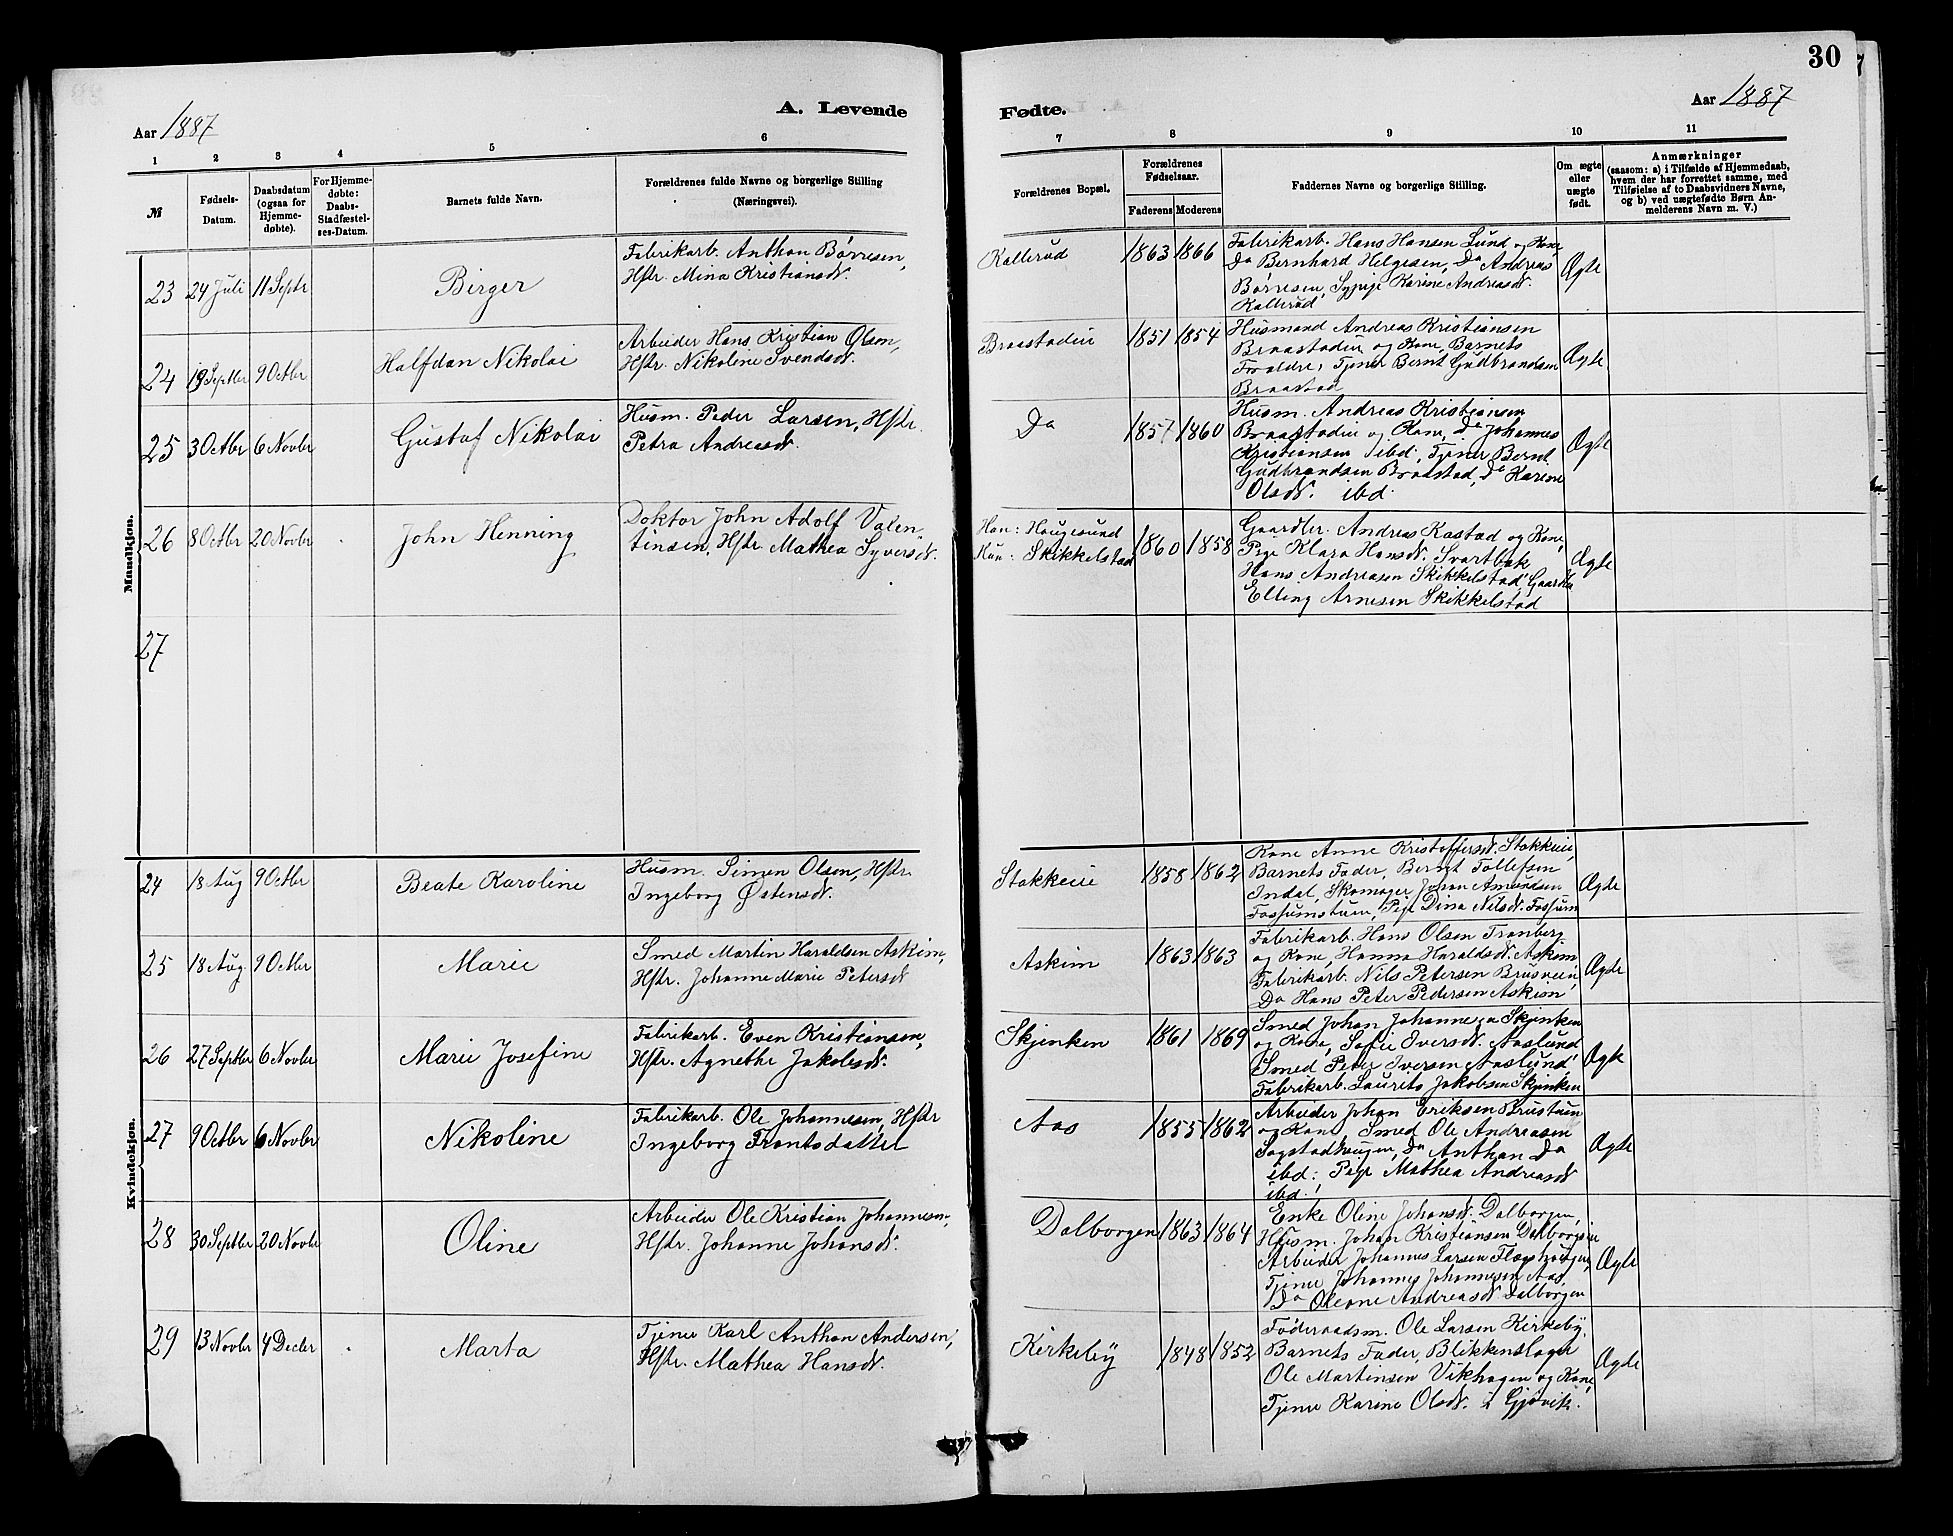 30
Aar 1887
A. Levende
Fødte.
Aar 1887
1 2 3 4 5 6 7 8 9 10 11
№
Fødsels-
Datum.
Daabsdatum
(ogsaa for
Hjemme-
døbte).
For Hjemme-
døbte:
Daabs-
Stadfæstel-
ses-Datum.
Barnets fulde Navn.
Forældrenes fulde Navne og borgerlige Stilling
(Næringsvei).
Forældrenes Bopæl.
Forældrenes
Fødselsaar.
Faderens Moderens
Faddernes Navne og borgerlige Stilling.
Om ægte
eller
uægte
født.
Anmærkninger
(saasom: a) i Tilfælde af Hjemmedaab,
hvem der har forrettet samme, med
Tilføielse af to Daabsvidners Navne,
og b) ved uægtefødte Børn An-
melderens Navn m. V.)
Mandkjøn.
23 24 Juli 11 Septr
Birger
Fabrikarb. Anthon Børresen,
Hstr. Mina Kristiansdt.
Kallerud
1863 1866
Fabrikarb. Hans Hansen Lund og Kone,
Do Bernhard Helgesen, Do Andreas
Børresen, Sypige Karine Andreasdt.
Kallerud
Ægte
24 19 Septbr 9 Octbr
Halfdan Nikolai
Arbeider Hans Kristian Olsen,
Hstr. Nikoline Svendsdt.
Braastadeie
1851 1854
Husmand Andreas Kristiansen
Braastadeie og Kone, Barnets
Forældre, Tjener Bernt Gudbrandsen
Braastad
Ægte
25 3 Octbr 6 Novbr
Gustaf Nikolai
Husm. Peder Larsen, Hstr.
Petra Andreasdt.
Do
1857 1860
Husm. Andreas Kristiansen
Braastadeie og Kone, Do Johannes
Kristiansen ibd, Tjener Bernt
Gudbrandsen Braastad, Do Karine
Olsdt. ibd.
Ægte
26 8 Octbr 20 Novbr
John Henning
Doktor John Adolf Valen-
tinsen, Hstr Mathea Syversdt.
Han: Haugesund
Hun: Skikkelstad
1860 1858
Gaardbr. Andreas Kastad og Kone,
Pige Klara Hansdt. Svartbæk
Hans Andreasen Skikkelstad, Gaardbr
Elling Arnesen Skikkelstad
Ægte
27
Kvindekjøn.
24 18 Aug 9 Octbr
Beate Karoline
Husm. Simen Olsen, Hstr.
Ingeborg Østensdt.
Stokkeeie
1858 1862
Kone Anne Kristoffersdt. Stokkeeie,
Barnets Fader, Berngt Tollefsen
Indal, Skomager Johan Amundsen
Fossumstuen, Pige Dina Nilsdt. Fossum
Ægte
25 18 Aug. 9 Octbr
Marie
Smed Martin Haraldsen Askim,
Hstr. Johanne Marie Petersdt
Askim
1863 1863
Fabrikarb. Hans Olsen Tranberg
og Kone, Hanna Haraldsdt. Askim
Fabrikarb. Nils Petersen Brusveen,
Do Hans Peter Pedersen Askim
Ægte
26 27 Septbr 6 Novbr
Marie Josefine
Fabrikarb. Even Kristiansen,
Hstr. Agnethe Jakobsdt.
Skjenken
1861 1869
Smed Johan Johannesen Skjenken
og Kone, Sofie Iversdt. Aaslund
Smed Peter Iversen Aaslund,
Fabrikarb. Laurits Jakobsen Skjenken
Ægte
27 9 Octbr 6 Novbr
Nikoline
Fabrikarb. Ole Johannesen, Hstr
Ingeborg Frantsdatter
Aas
1855 1862
Arbeider Johan Eriksen Brustuen
og Kone, Smed Ole Andreasen
Sogstadhaugen, Do Anthon Do
ibd., Pige Mathea Andreasdt
ibd.
Ægte
28 30 Septbr 20 Novbr
Oline
Arbeider Ole Kristian Johannesen,
Hstr. Johanne Johansdt.
Dalborgen
1863 1864
Enke Oline Johansdt. Dalborgen,
Husm. Johan Kristiansen Dalborgeie
Arbeider Johannes Larsen
Tjener Johannes Johannesen Aas,
Do Oleane Andreasdt. Dalborgen
Ægte
29 13 Novbr 4 Decbr
Marta
Tjener Karl Anthon Andersen,
Hstr. Mathea Hansdt.
Kirkeby
1848 1852
Føderaadsm. Ole Larsen Kirkeby,
Barnets Fader, Blikkenslager
Ole Martinsen Vikhagen og Kone,
Tjener Karine Olsdt. i Gjøvik.
Ægte